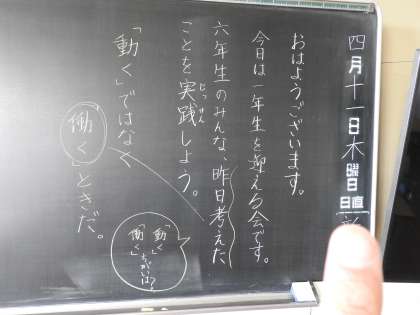 四月十一日木曜日
日直
おはようございます。
今日は一年生を迎える会です。
六年生のみんな、昨日考えた
ことを実践しよう。
じっせん
「動く」ではなく
「働く」ときだ。
「動く」
「働く」
ちがいは?